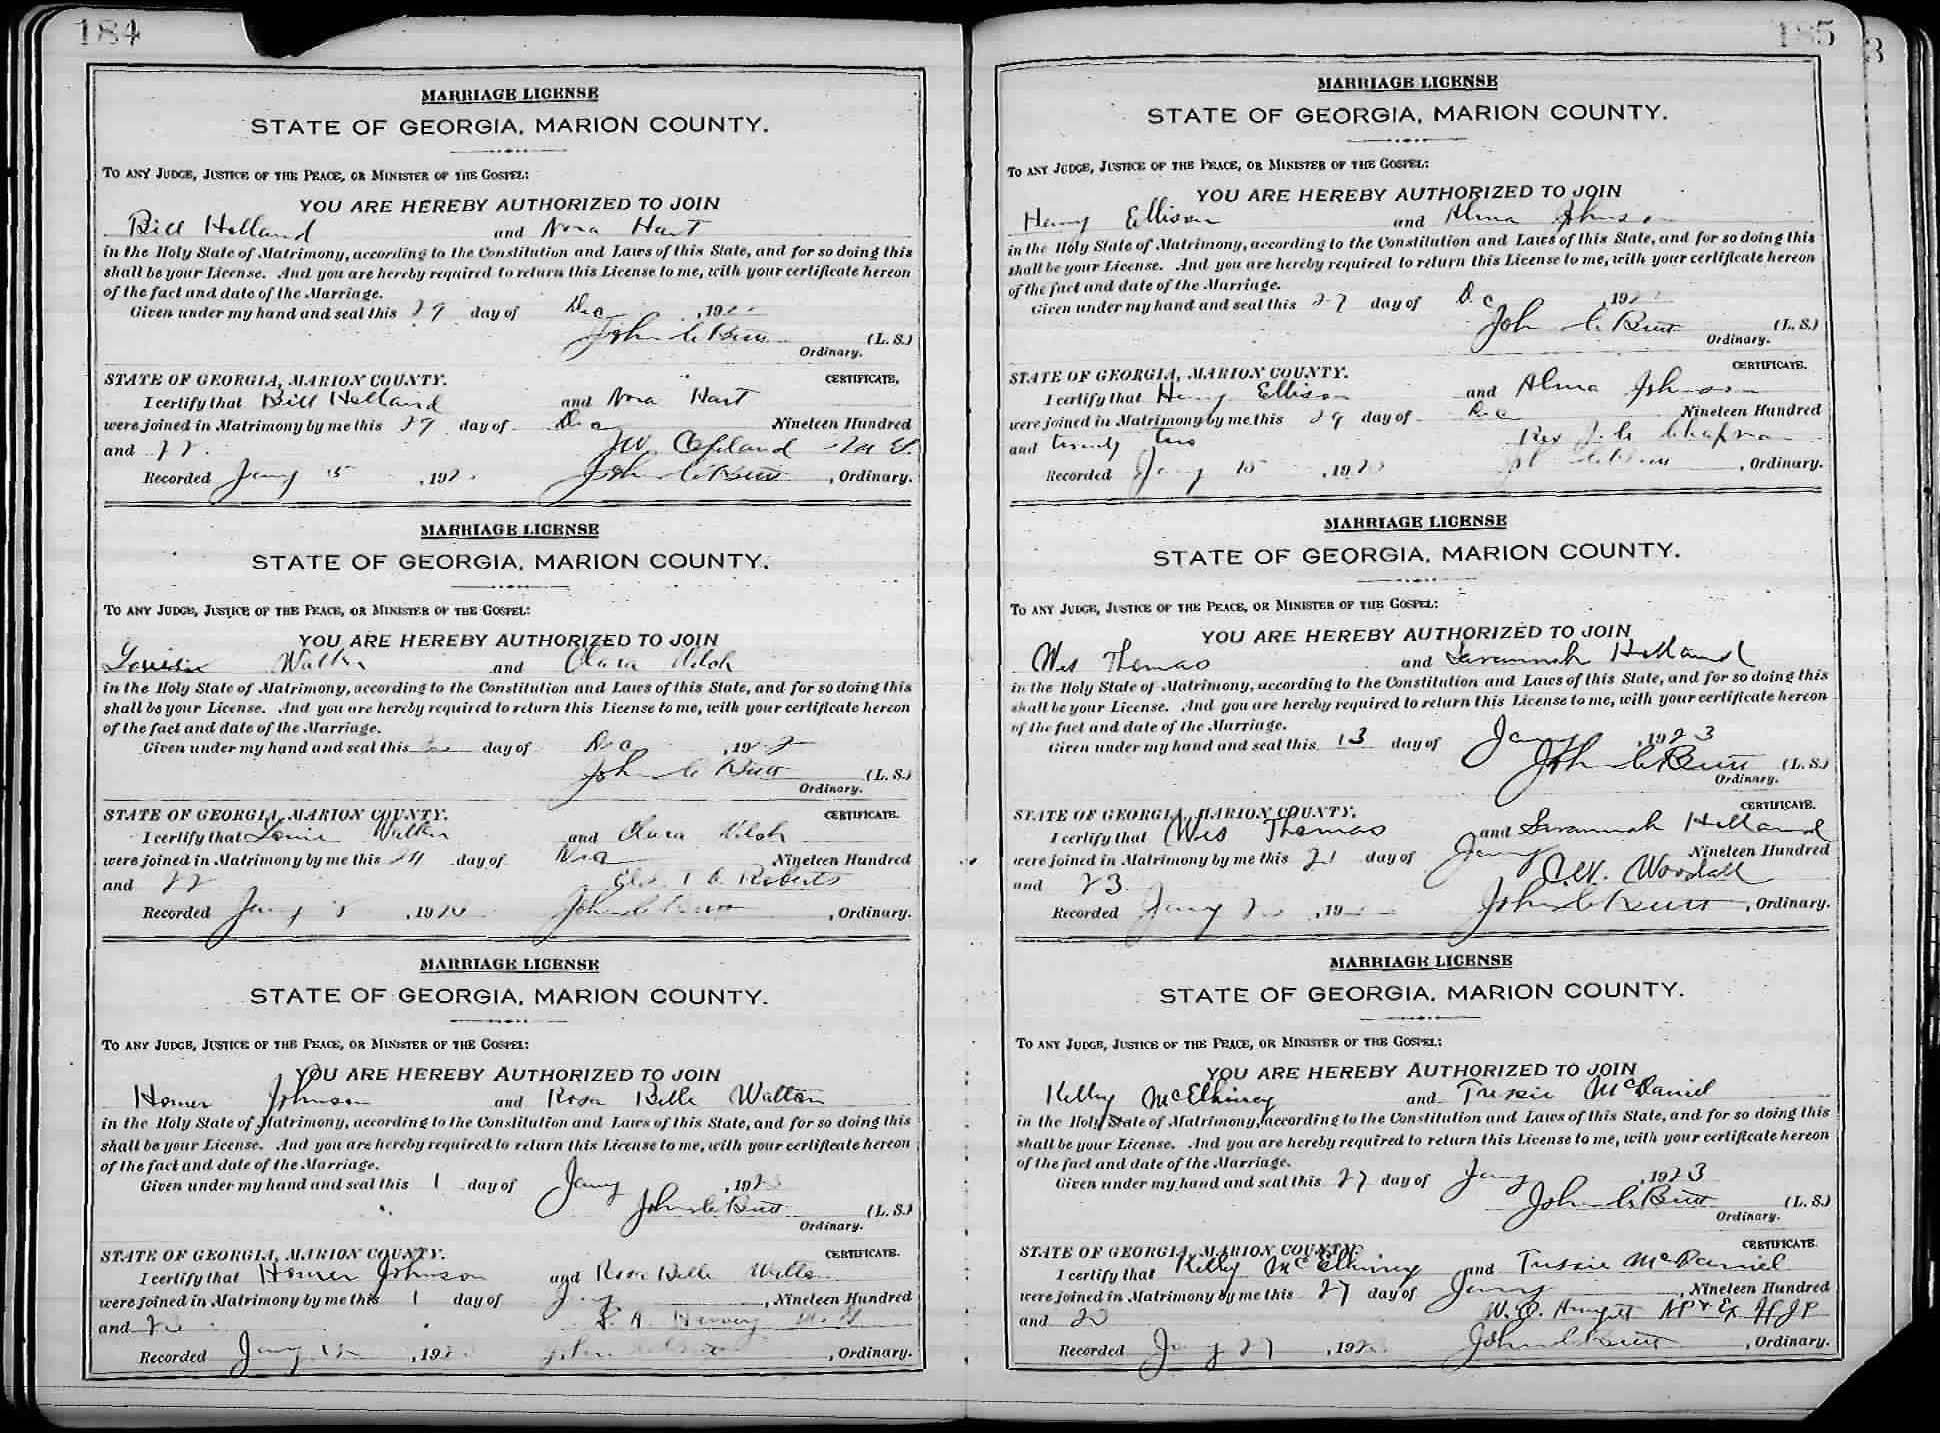 184
MARRIAGE LICENSE
STATE OF GEORGIA, MARION COUNTY.
TO ANY JUDGE, JUSTICE OF THE PEACE, OR MINISTER OF THE GOSPEL:
YOU ARE HEREBY AUTHORIZED TO JOIN
Bill Holland and Nora Hart
in the Holy State of Matrimony, according to the Constitution and Laws of this State, and for so doing this
shall be your License. And you are hereby required to return this License to me, with your certificate hereon
of the fact and date of the Marriage.
Given under my hand and seal this 29 day of Dec, 192
John C Butt (L. S.)
Ordinary.
STATE OF GEORGIA, MARION COUNTY. CERTIFICATE.
I certify that Bill Holland and Nora Hart
were joined in Matrimony by me this 29 day of Dec Nineteen Hundred
and 22.
JW Copeland
Recorded Jany 15, 192 John C Butt, Ordinary.
MARRIAGE LICENSE
STATE OF GEORGIA, MARION COUNTY.
TO ANY JUDGE, JUSTICE OF THE PEACE, OR MINISTER OF THE GOSPEL:
YOU ARE HEREBY AUTHORIZED TO JOIN
Walker and Clara
in the Holy State of Matrimony, according to the Constitution and Laws of this State, and for so doing this
shall be your License. And you are hereby required to return this License to me, with your certificate hereon
of the fact and date of the Marriage.
Given under my hand and seal this day of Dec, 1922
John C Butt (L. S.)
Ordinary.
STATE OF GEORGIA, MARION COUNTY. CERTIFICATE.
I certify that Louie Walker and Clara
were joined in Matrimony by me this 24 day of Dec Nineteen Hundred
and 22
Roberts
Recorded Jany, 192 John C Butt, Ordinary.
MARRIAGE LICENSE
STATE OF GEORGIA, MARION COUNTY.
TO ANY JUDGE, JUSTICE OF THE PEACE, OR MINISTER OF THE GOSPEL:
YOU ARE HEREBY AUTHORIZED TO JOIN
Homer Johnson and Rosa Belle Walton
in the Holy State of Matrimony, according to the Constitution and Laws of this State, and for so doing this
shall be your License. And you are hereby required to return this License to me, with your certificate hereon
of the fact and date of the Marriage.
Given under my hand and seal this 1 day of Jany, 192
John C Butt (L. S.)
Ordinary.
STATE OF GEORGIA, MARION COUNTY. CERTIFICATE.
I certify that Homer Johnson and Rosa Belle Walton
were joined in Matrimony by me this 1 day of Jany, Nineteen Hundred
and
Recorded Jany, 192, Ordinary.
185
MARRIAGE LICENSE
STATE OF GEORGIA, MARION COUNTY.
TO ANY JUDGE, JUSTICE OF THE PEACE, OR MINISTER OF THE GOSPEL:
YOU ARE HEREBY AUTHORIZED TO JOIN
Henry Ellison and Alma Johnson
in the Holy State of Matrimony, according to the Constitution and Laws of this State, and for so doing this
shall be your License. And you are hereby required to return this License to me, with your certificate hereon
of the fact and date of the Marriage.
Given under my hand and seal this 27 day of Dec, 192
John C Butt (L. S.)
Ordinary.
STATE OF GEORGIA, MARION COUNTY. CERTIFICATE.
I certify that Henry Ellison and Alma Johnson
were joined in Matrimony by me this 29 day of Dec Nineteen Hundred
and twenty two
Rev J. C. Chapman
Recorded Jany 15, 192, Ordinary.
MARRIAGE LICENSE
STATE OF GEORGIA, MARION COUNTY.
TO ANY JUDGE, JUSTICE OF THE PEACE, OR MINISTER OF THE GOSPEL:
YOU ARE HEREBY AUTHORIZED TO JOIN
Wes Thomas and Savannah Holland
in the Holy State of Matrimony, according to the Constitution and Laws of this State, and for so doing this
shall be your License. And you are hereby required to return this License to me, with your certificate hereon
of the fact and date of the Marriage.
Given under my hand and seal this 13 day of Jany, 1923
John C Butt (L. S.)
Ordinary.
STATE OF GEORGIA, MARION COUNTY. CERTIFICATE.
I certify that Wes Thomas and Savannah Holland
were joined in Matrimony by me this 21 day of Jany Nineteen Hundred
and 23
C.W. Woodall
Recorded Jany, 192 John C Butt, Ordinary.
MARRIAGE LICENSE
STATE OF GEORGIA, MARION COUNTY.
TO ANY JUDGE, JUSTICE OF THE PEACE, OR MINISTER OF THE GOSPEL:
YOU ARE HEREBY AUTHORIZED TO JOIN
Kelley McElhiney and Tressie McDaniel
in the Holy State of Matrimony, according to the Constitution and Laws of this State, and for so doing this
shall be your License. And you are hereby required to return this License to me, with your certificate hereon
of the fact and date of the Marriage.
Given under my hand and seal this 27 day of Jany, 1923
John C Butt (L. S.)
Ordinary.
STATE OF GEORGIA, MARION COUNTY. CERTIFICATE.
I certify that Kelley McElhiney and Tressie McDaniel
were joined in Matrimony by me this 27 day of Jany, Nineteen Hundred
and 23
W. O.
Recorded Jany 27, 192 John C Butt, Ordinary.